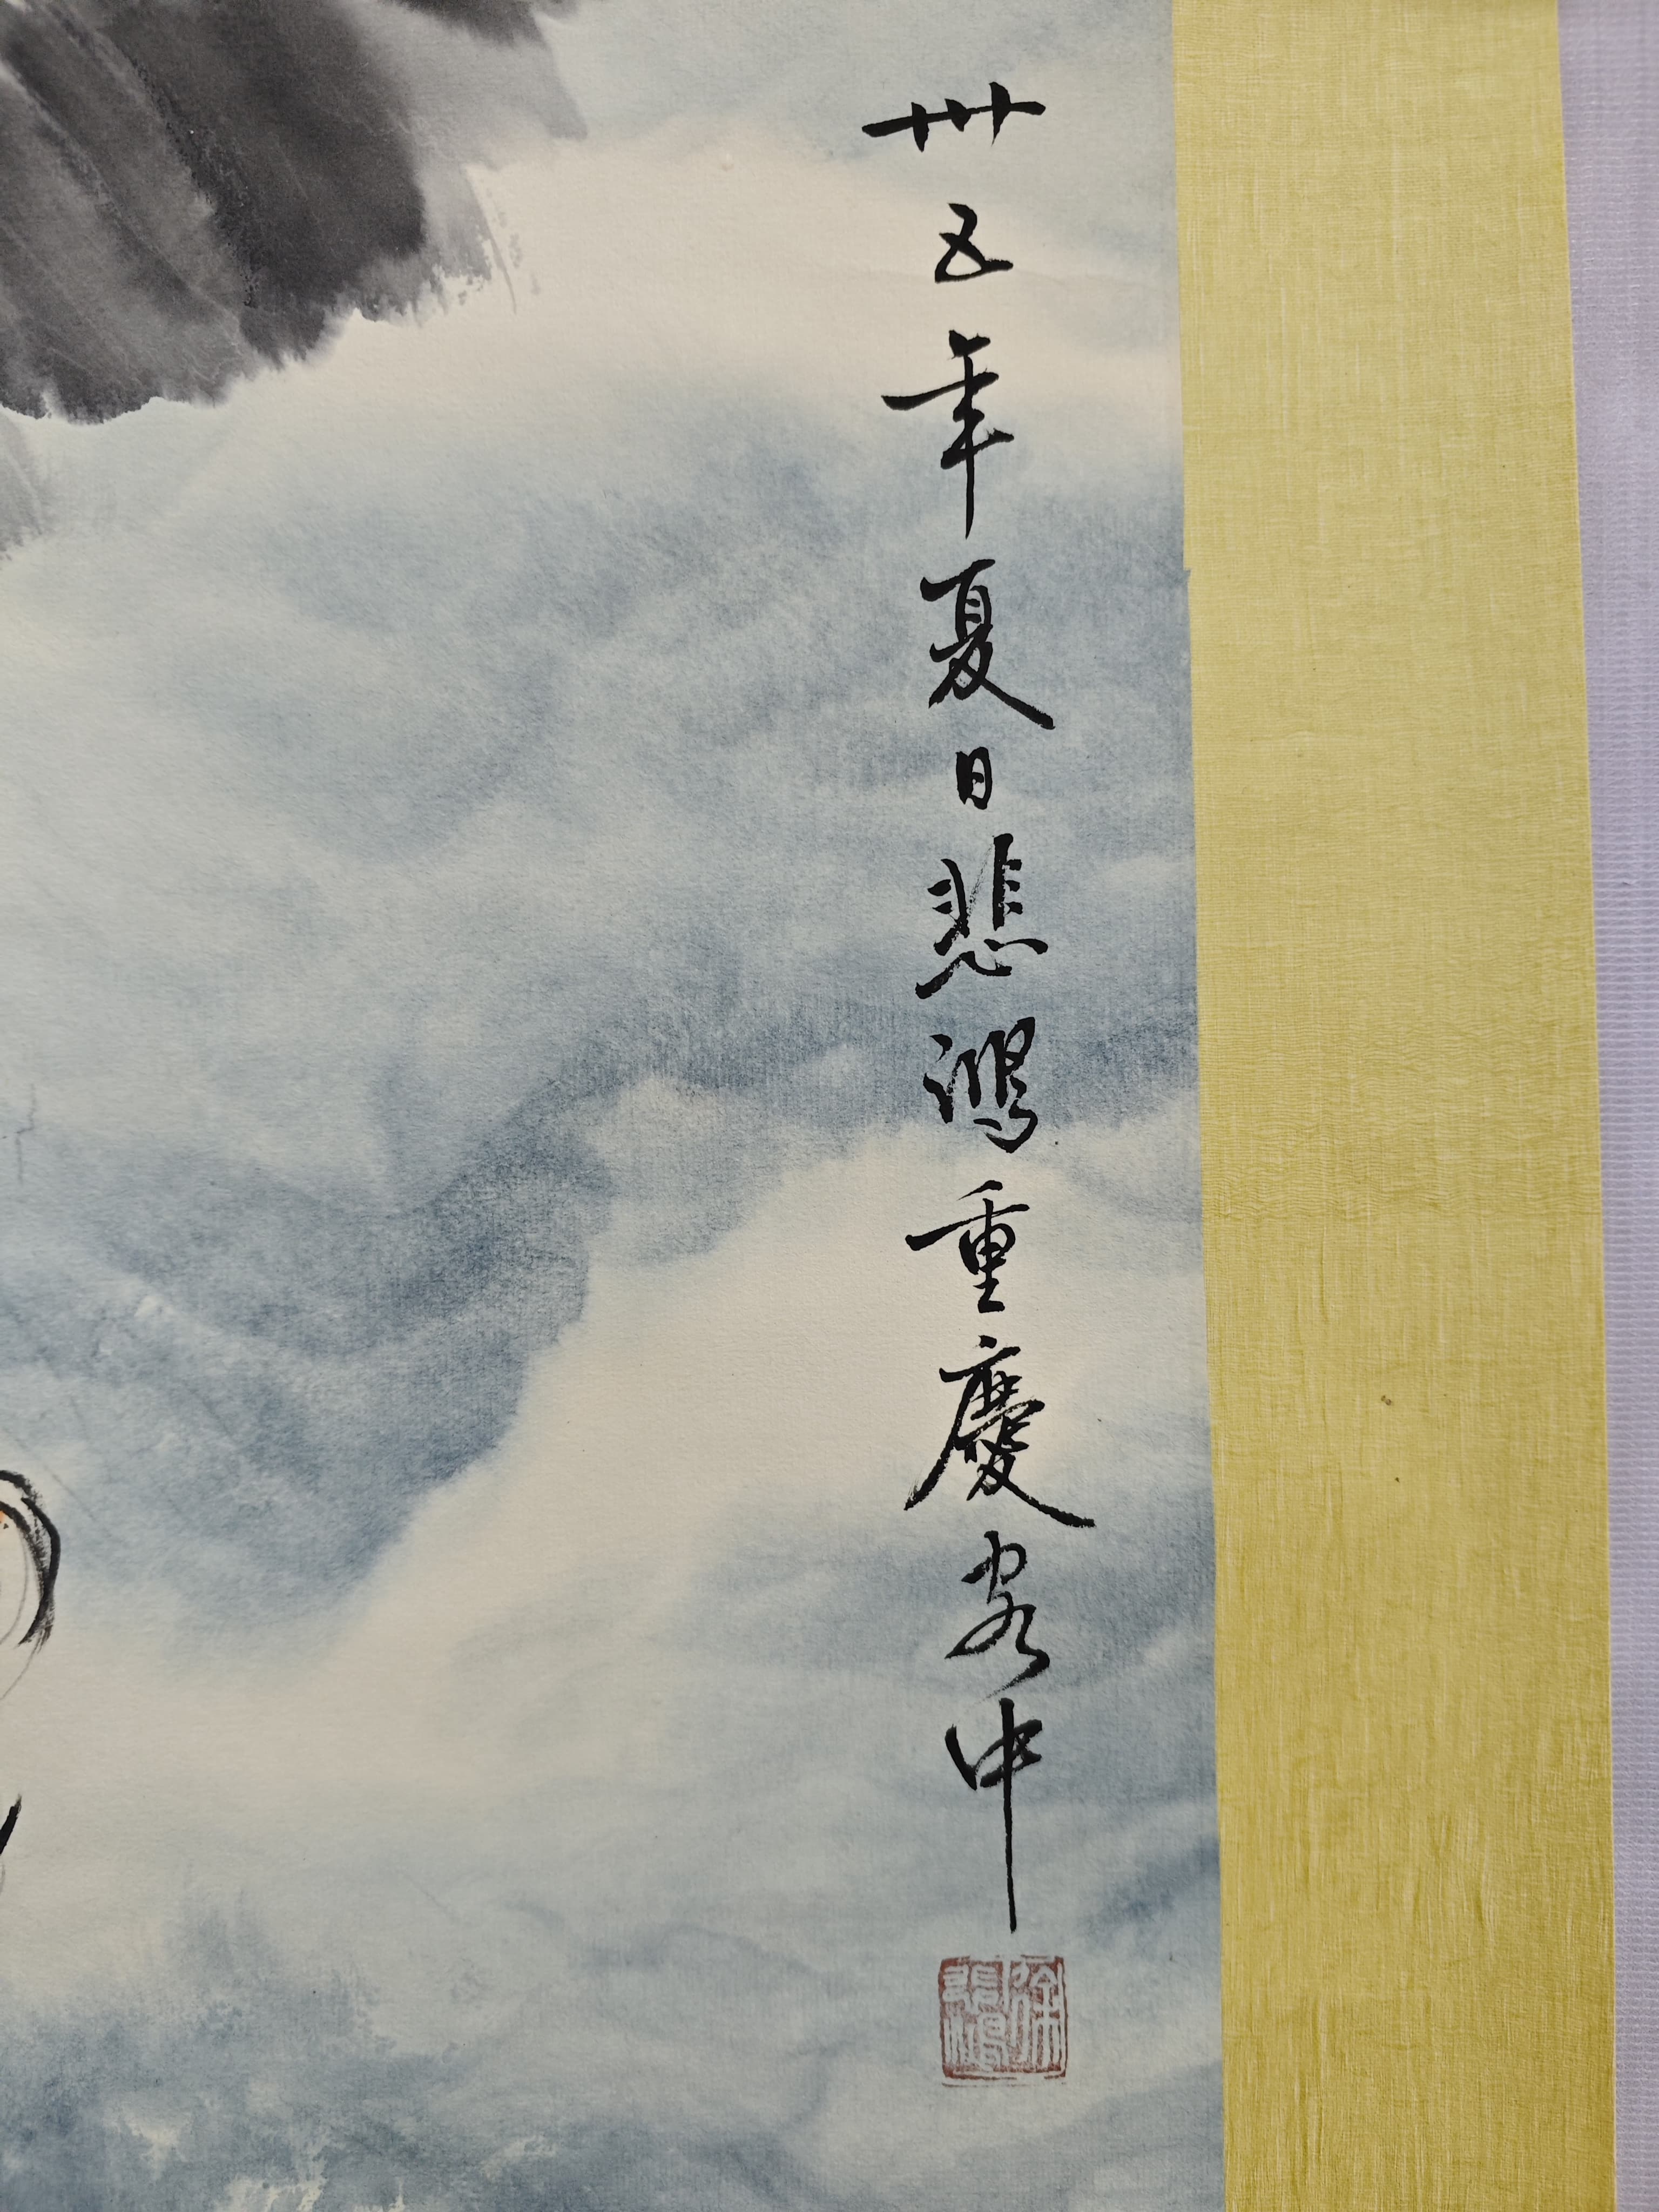 卅五年夏日悲鴻重慶客中
徐悲鴻